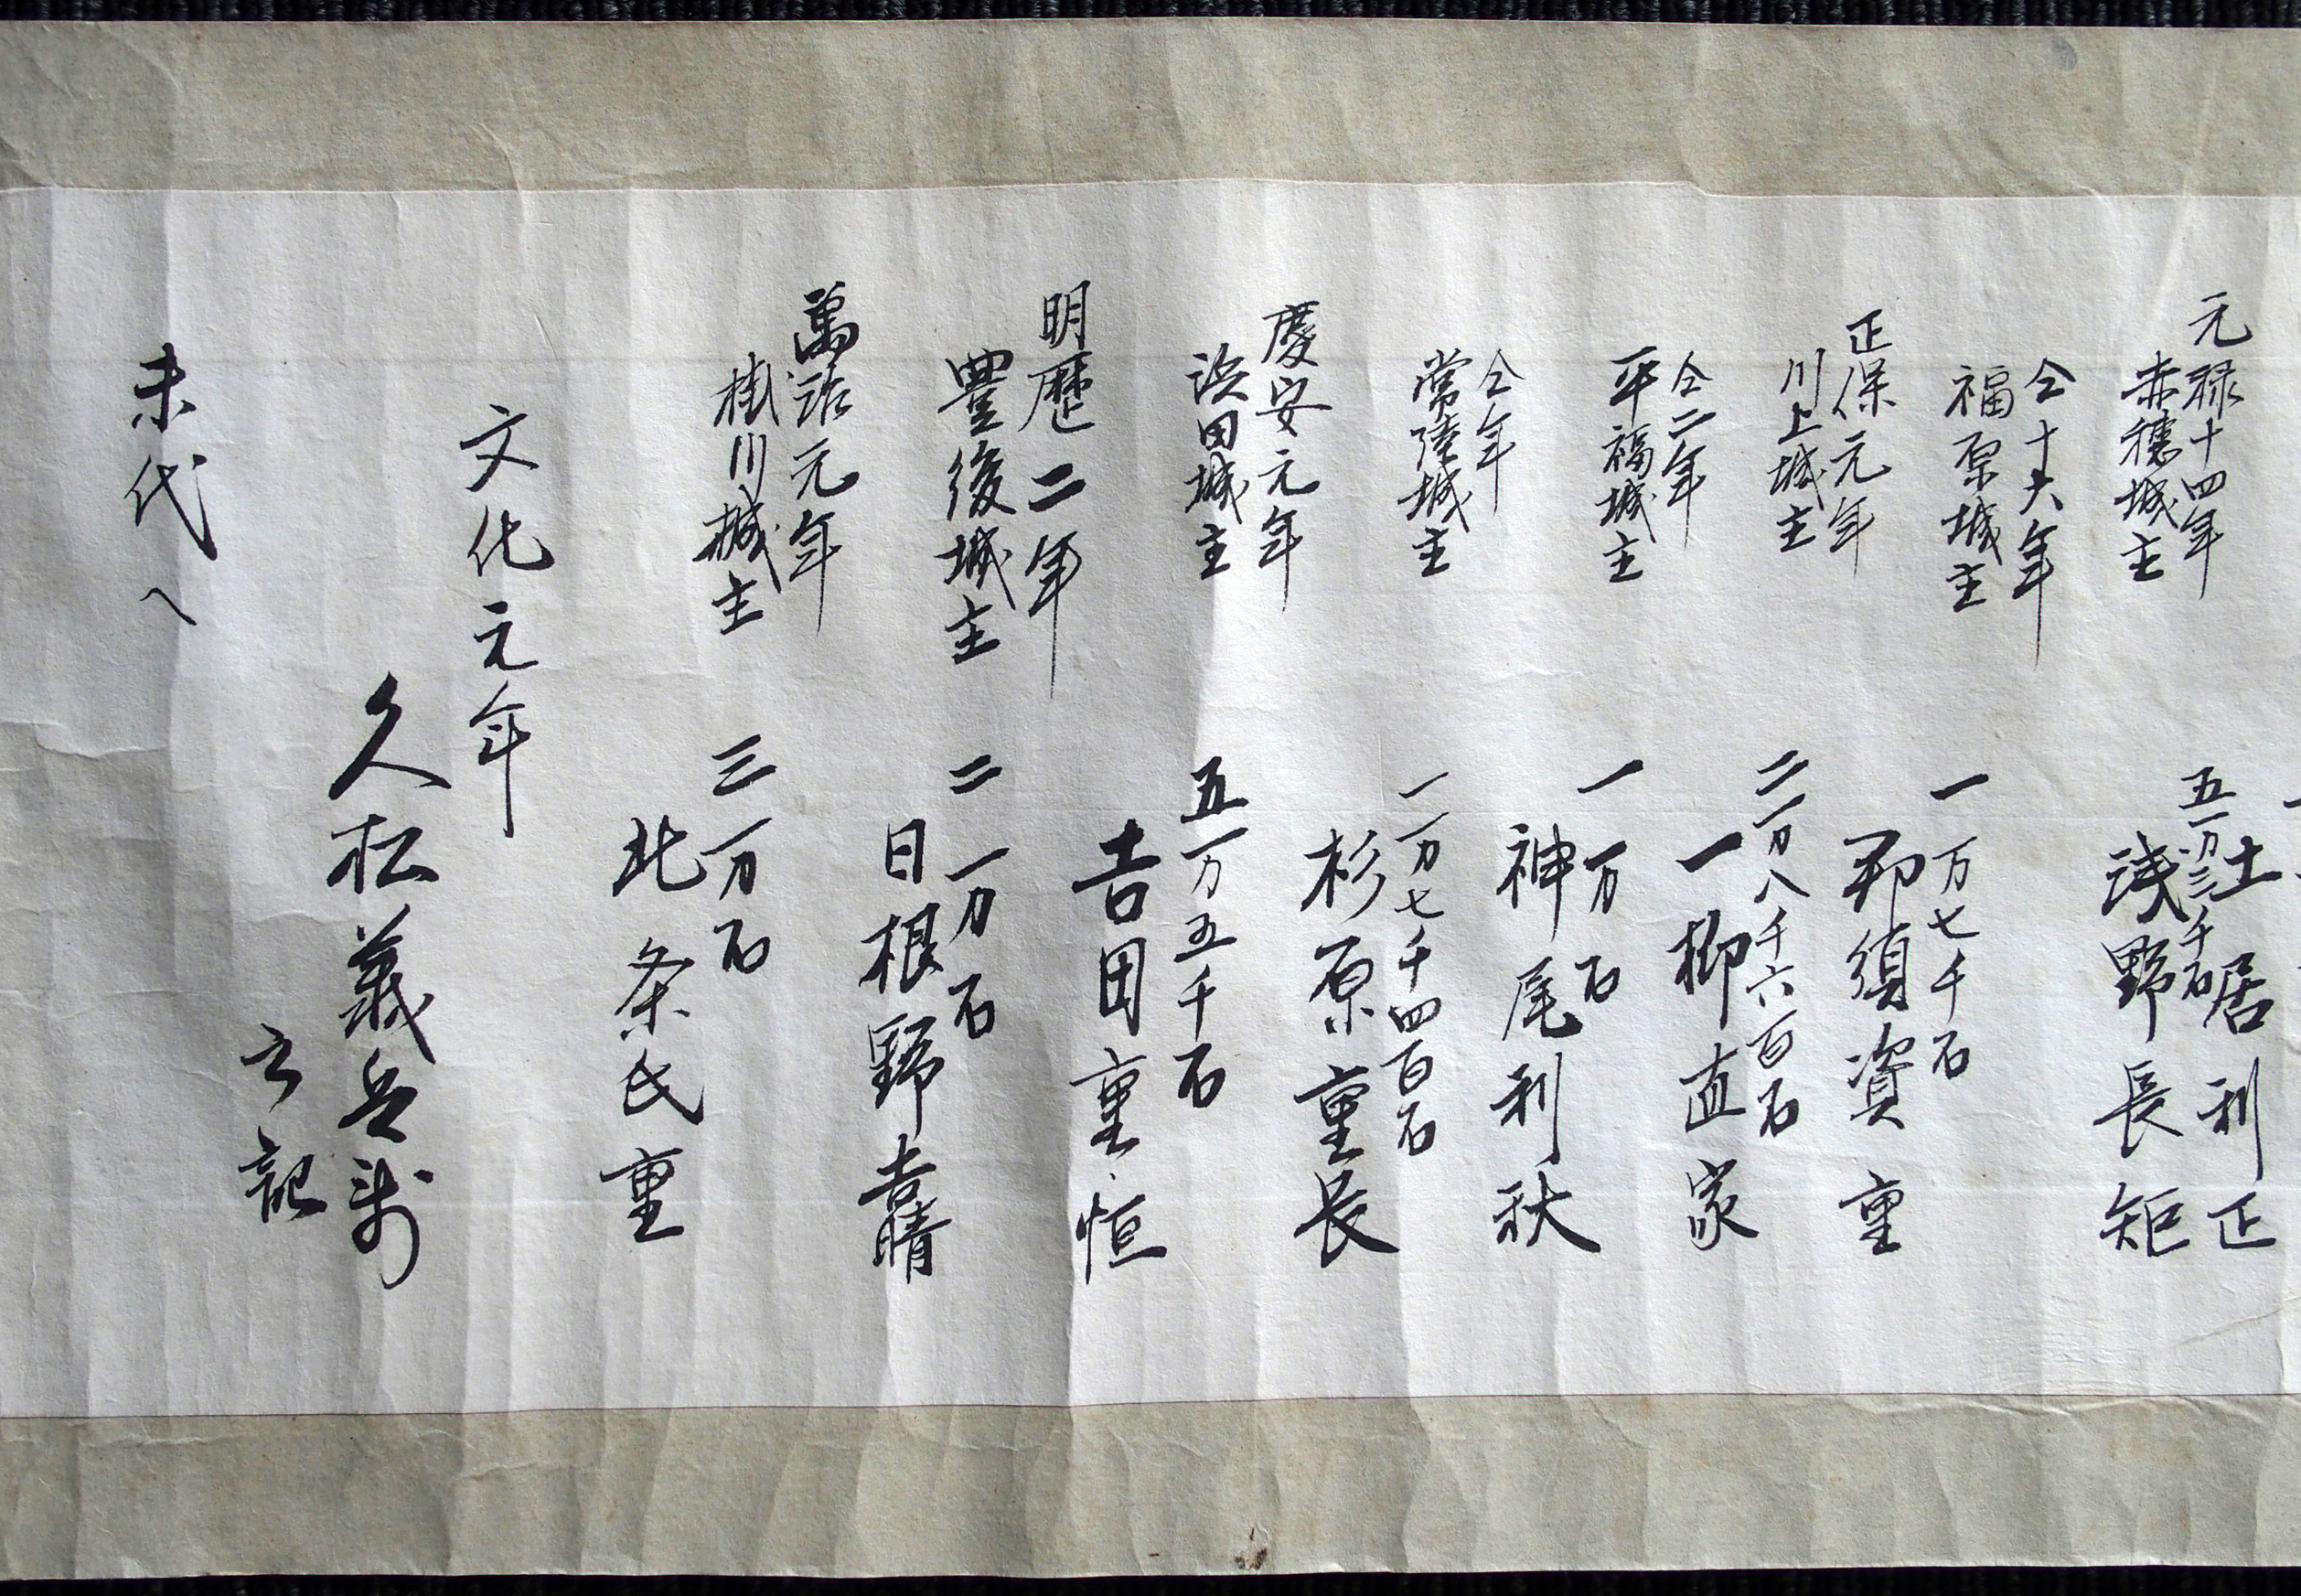 土居利正
元禄十四年
赤穂城主
五万三千石
浅野長矩
仝十六年
福原城主
一万七千石
那須資重
正保元年
川上城主
二万八千六百石
一柳直家
仝二年
平福城主
一万石
神尾利秋
仝年
常陸城主
一万七千四百石
杉原重長
慶安元年
浜田城主
五万五千石
吉田重恒
明歴二年
豊後城主
二万石
日根野吉晴
萬治元年
掛川城主
三万石
北条氏重
文化元年
久松義兵衛
之記
末代へ